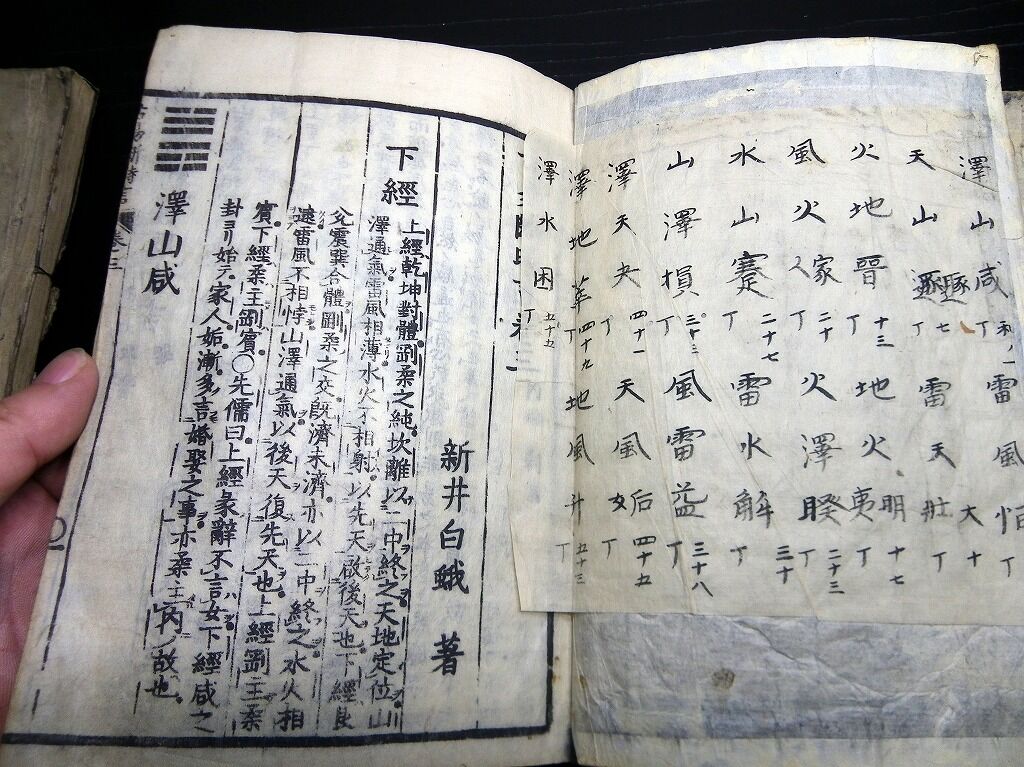 澤山咸丁 雷風恒丁
天山遯丁七 雷天大壯丁十
火地晉丁十三 地火明夷丁十七
風火家人丁二十 火澤睽丁二十三
水山蹇丁二十七 雷水解丁三十
山澤損丁三十三 風雷益丁三十八
澤天夬丁四十一 天風姤丁四十五
澤地萃丁四十九 地風升丁五十三
澤水困丁五十五
新井白蛾 著
下經
上經乾坤對體剛柔之純坎離以二中終之天地定位山
澤通氣雷風相薄水火不相射以先天啟後天也下經艮
兌震巽合體剛柔之交既濟未濟亦以二中終之水火相
逮雷風不相悖山澤通氣以後天復先天也上經剛主柔
賓下經柔主剛賓〇先儒曰上經彖辭不言女下經咸之
卦ヨリ始テ家人姤漸多言婚娶之事亦柔主内故也
澤山咸
卷三